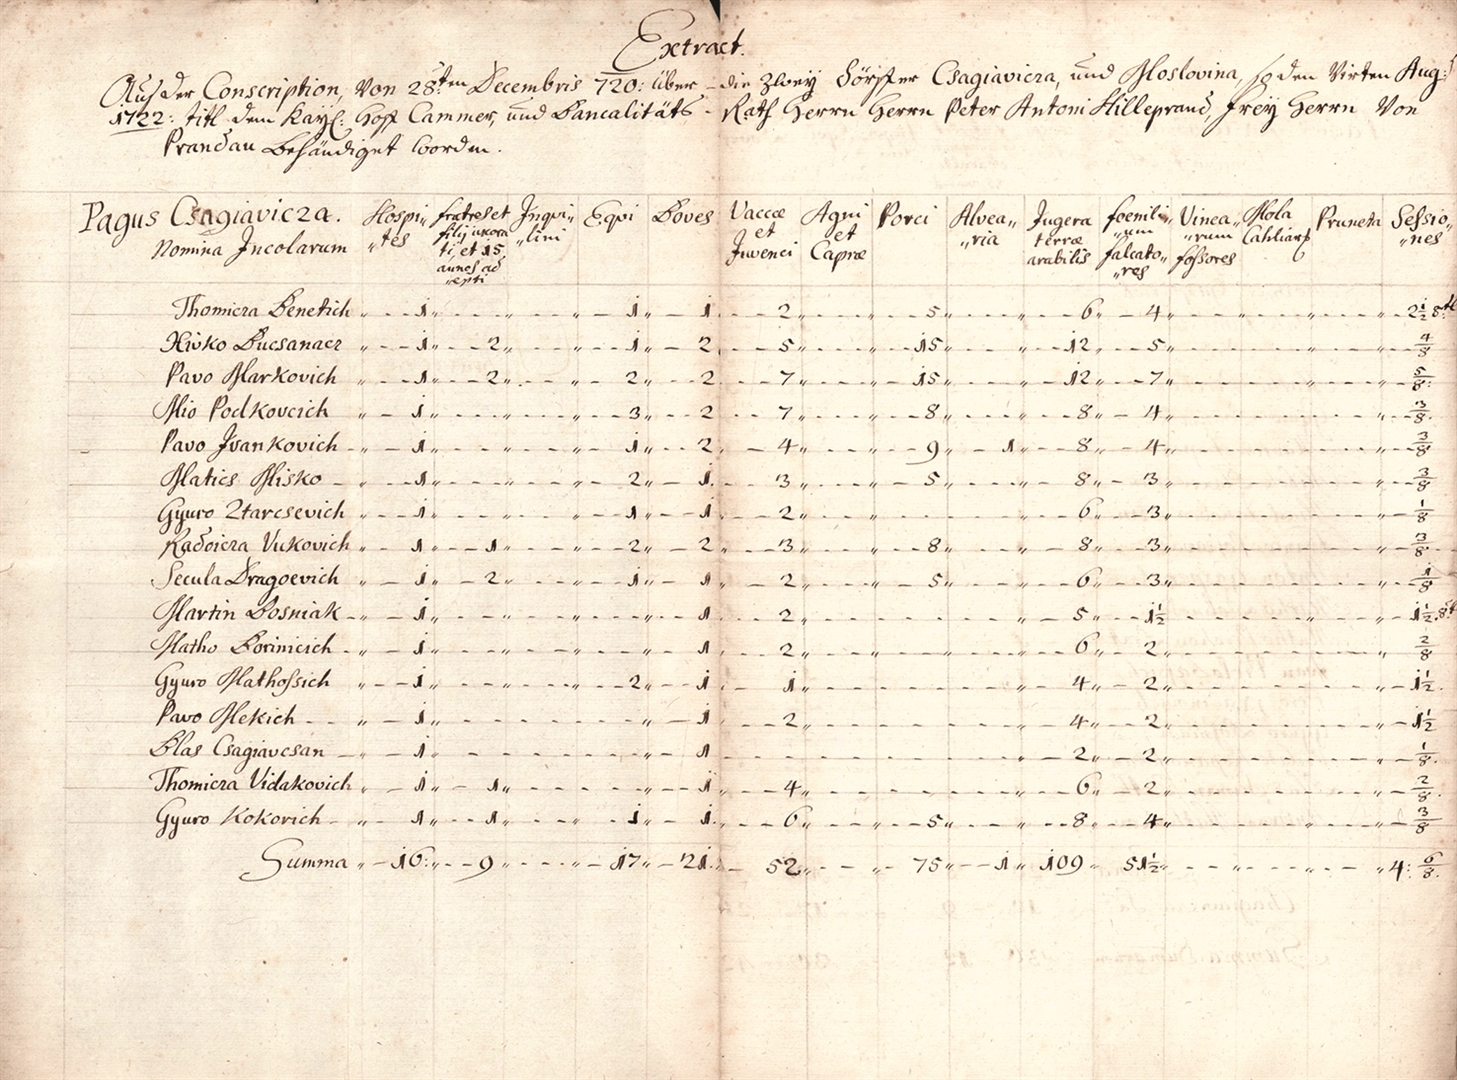 Extract.
Auß der Conscription, Von 28ten Decembris 720: über die zwey Dörffer Csagiavicza, und Moslovina, so den Virten Aug:
1722: titl: dem Kayl: Hoff Cammer, und Bancalitäts-Rath Herrn Herrn Peter Antoni Hilleprand, Frey Herrn Von
Prandau behändiget worden.
Pagus Csagiavicza. Nomina Incolarum Hospites Fratres et filij uxorati, et 15 annos adepti Inquilini Equi Boves Vaccæ et Juvenci Agni et Capræ Porci Alvearia Jugera terræ arabilis foenilium falcatores Vinearum fossores Mola Pruneta Sessiones
Thomicza Benetich 1 1 1 2 5 6 4 2½ 8tl
Xivko Bucsanacz 1 2 1 2 5 15 12 5 4/8
Pavo Markovich 1 2 2 2 7 15 12 7 5/8
Mio Podkovcich 1 3 2 7 8 8 4 3/8
Pavo Jvankovich 1 1 2 4 9 1 8 4 3/8
Matics Misko 1 2 1 3 5 8 3 3/8
Gyuro Starcsevich 1 1 1 2 6 3 1/8
Radoicza Vukovich 1 1 2 2 3 8 8 3 3/8
Secula Dragoevich 1 2 1 1 2 5 6 3 1/8
Martin Bosniak 1 1 2 5 1½ 1½ 8t
Matho Borincich 1 1 2 6 2 2/8
Gyuro Mathossich 1 2 1 1 4 2 1½
Pavo Mekich 1 1 2 4 2 1½
Blas Csagiavcsan 1 1 2 2 1/8
Thomicza Vidakovich 1 1 1 4 6 2 2/8
Gyuro Kokorich 1 1 1 1 6 5 8 4 3/8
Summa 16 9 17 21 52 75 1 109 51½ 4: 6/8